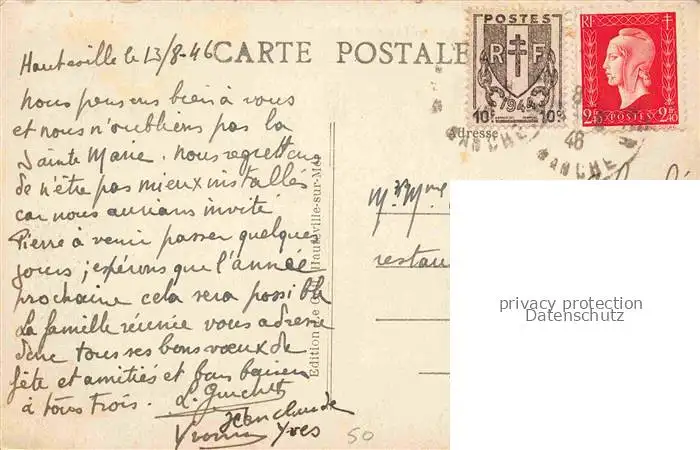 Hauteville le 13/8-46
CARTE POSTALE
nous pensons bien à vous
et nous n'oublions pas la
Sainte Marie. nous regrettons
de n'être pas mieux installés
car nous aurions invité
Pierre à venir passer quelques
jours ; espérons que l'année
prochaine cela sera possible
La famille réunie vous adresse
donc tous ses bons vœux de
fête et amitiés et bons baisers
à tous trois.
Jean claude
Yvonne Yves
50
Hauteville-sur-Mer
POSTES
RF
1944
10c 10c
RF
2f40 POSTES 2f40
Adresse
MANCHE
46
MANCHE
Mr Mme
restau
privacy protection
Datenschutz